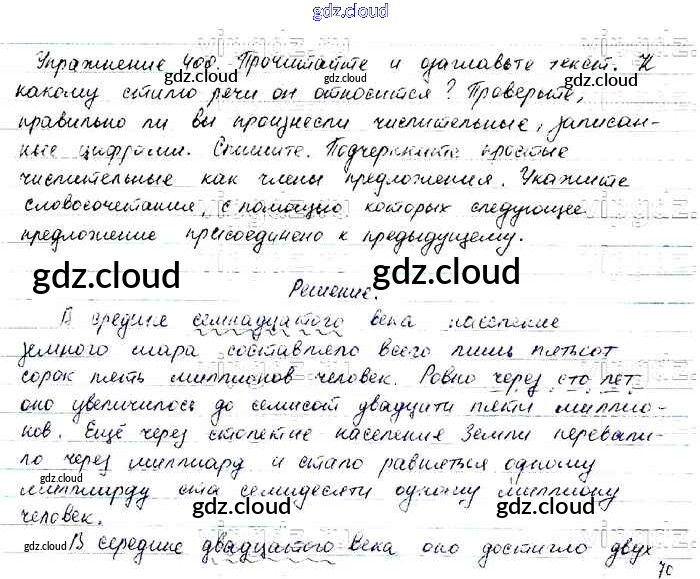 gdz.cloud
Упражнение 408. Прочитайте и озаглавьте текст. К
gdz.cloud gdz.cloud
какому стилю речи он относится? Проверьте,
gdz.cloud gdz.cloud
правильно ли вы произнесли числительные, записан-
ные цифрами. Спишите. Подчеркните простые
числительные как члены предложения. Укажите
словосочетания, с помощью которых следующее
предложение присоединено к предыдущему.
gdz.cloud gdz.cloud
Решение.
В средине семнадцатого века население
земного шара составляло всего лишь пятьсот
сорок пять миллионов человек. Ровно через сто лет
gdz.cloud gdz.cloud
оно увеличилось до семисот двадцати пяти миллио-
нов. Ещё через столетие население Земли перевали-
ло через миллиард и стало равняться одному
gdz.cloud
миллиарду ста семидесяти одному миллиону
gdz.cloud gdz.cloud
человек.
В середине двадцатого века оно достигло двух
gdz.cloud gdz.cloud gdz.cloud
70